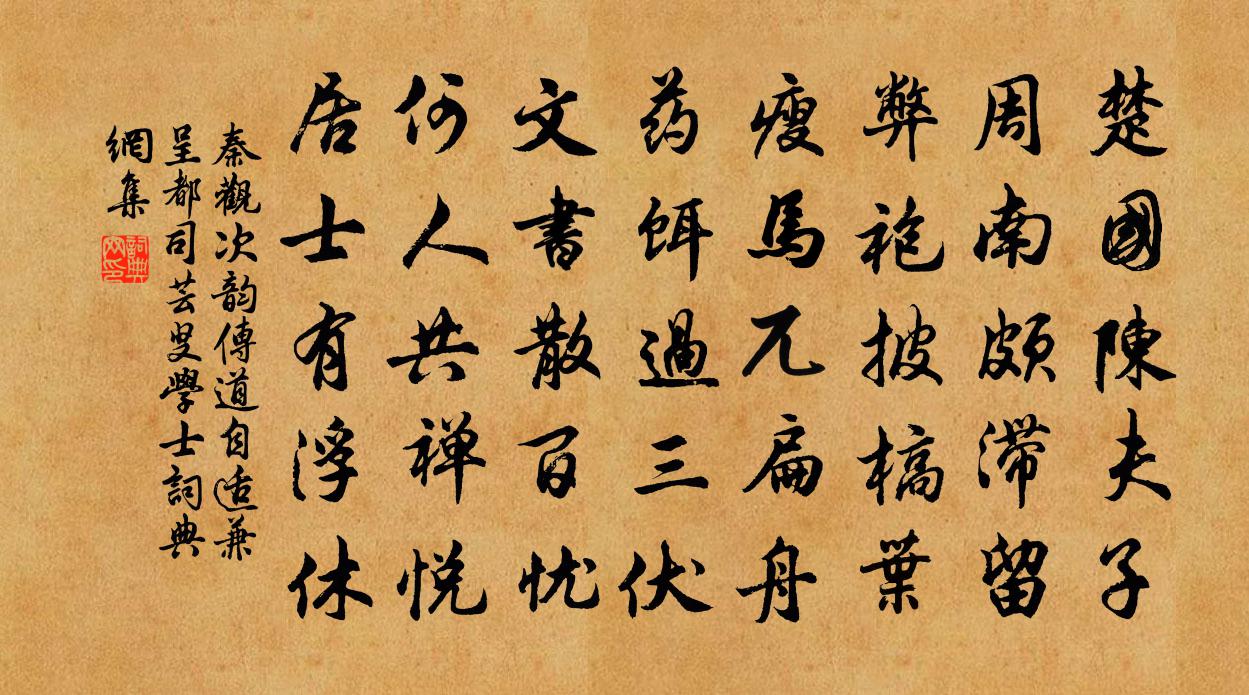 楚國陳夫子
周南頗滯留
弊袍披槁葉
瘦馬兀扁舟
药餌過三伏
文書散百忧
何人共禅悦
居士有浮休
秦觀次韵傳道自适兼
呈都司芸叟學士詞典
網集
詞典网印